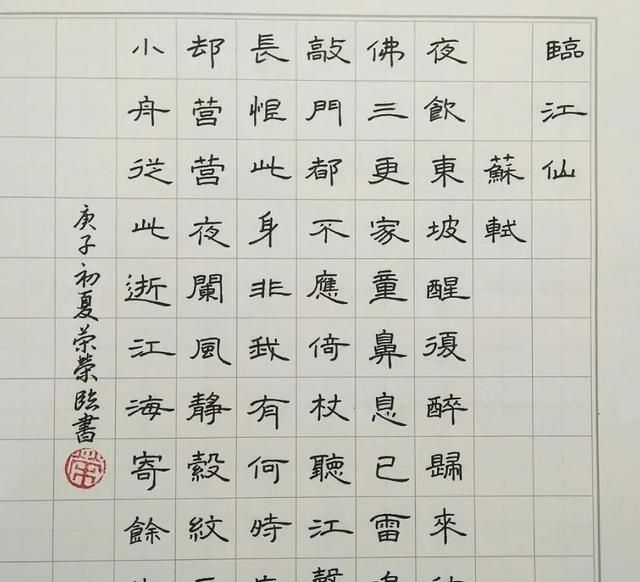 臨江仙
蘇軾
夜飲東坡醒復醉歸來
佛三更家童鼻息已雷
敲門都不應倚杖聽江聲
長恨此身非我有何時
却營營夜闌風靜縠紋
小舟從此逝江海寄餘
庚子初夏荣榮臨書